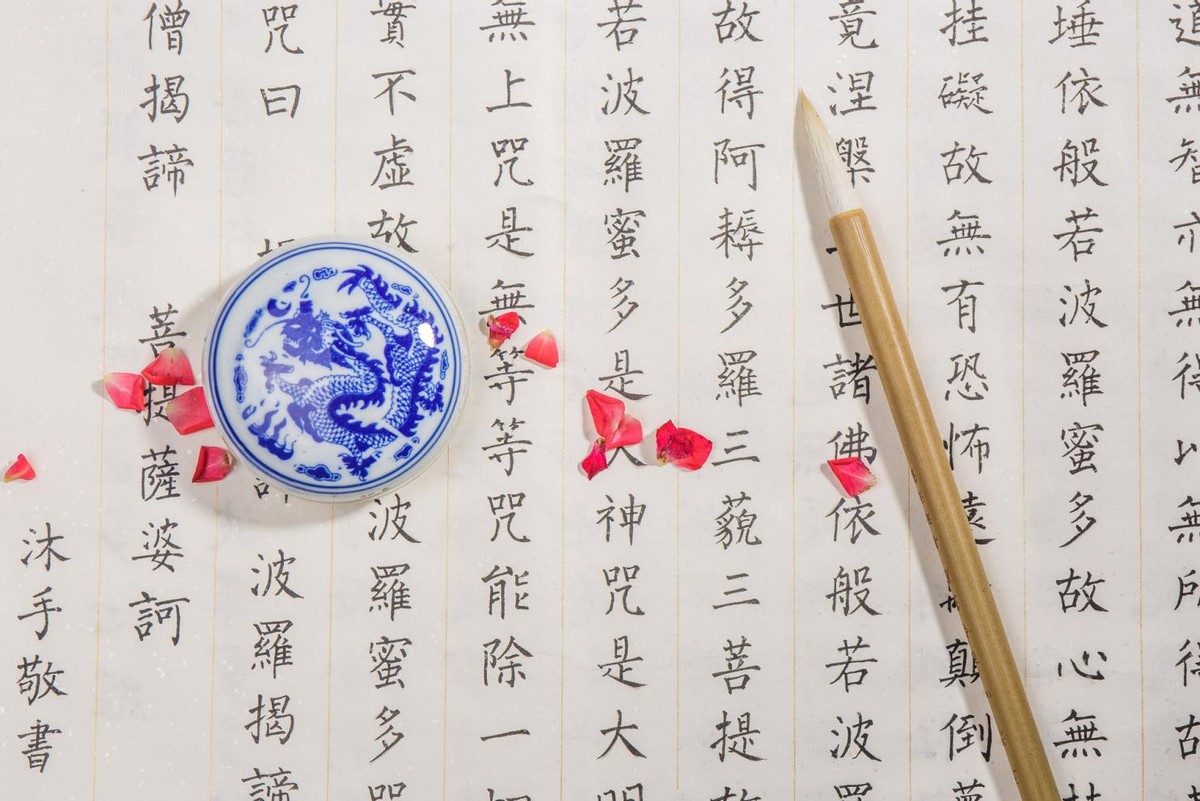 道無智亦無得以無所得故
埵依般若波羅蜜多故心無
挂礙故無有恐怖遠顛倒夢
竟涅槃世諸佛依般若波羅
故得阿耨多羅三藐三菩提故
若波羅蜜多是大神咒是大明
無上咒是無等等咒能除一切
實不虛故波羅蜜多咒
咒曰 波羅揭諦
僧揭諦 菩提薩婆訶
沐手敬書